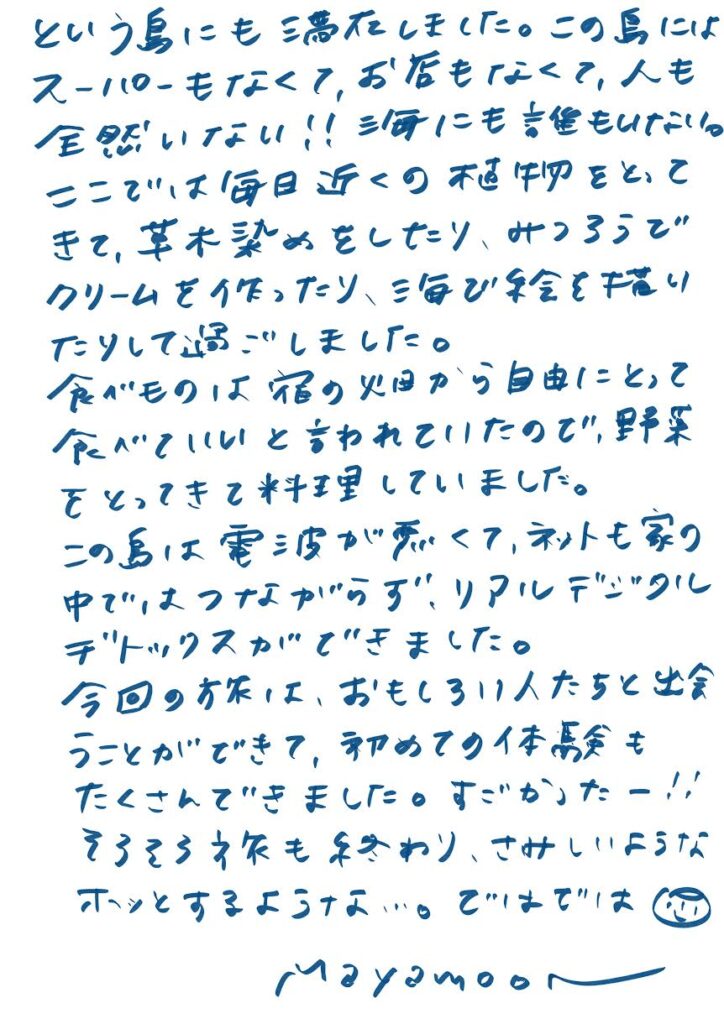 という島にも滞在しました。この島には
スーパーもなくて、お店もなくて、人も
全然いない!! 海にも誰もいない。
ここでは毎日近くの植物をとって
きて、草木染めをしたり、みつろうで
クリームを作ったり、海び絵を描い
たりして過ごしました。
食べものは宿の畑から自由にとって
食べていいと言われていたので、野菜
をとってきて料理していました。
この島は電波が悪くて、ネットも家の
中ではつながらず、リアルデジタル
デトックスができました。
今回の旅は、おもしろい人たちと出会
うことができて、初めての体験も
たくさんできました。すごかったー!!
そろそろ旅も終わり、さみしいような
ホッとするような…。ではでは
Mayamoon